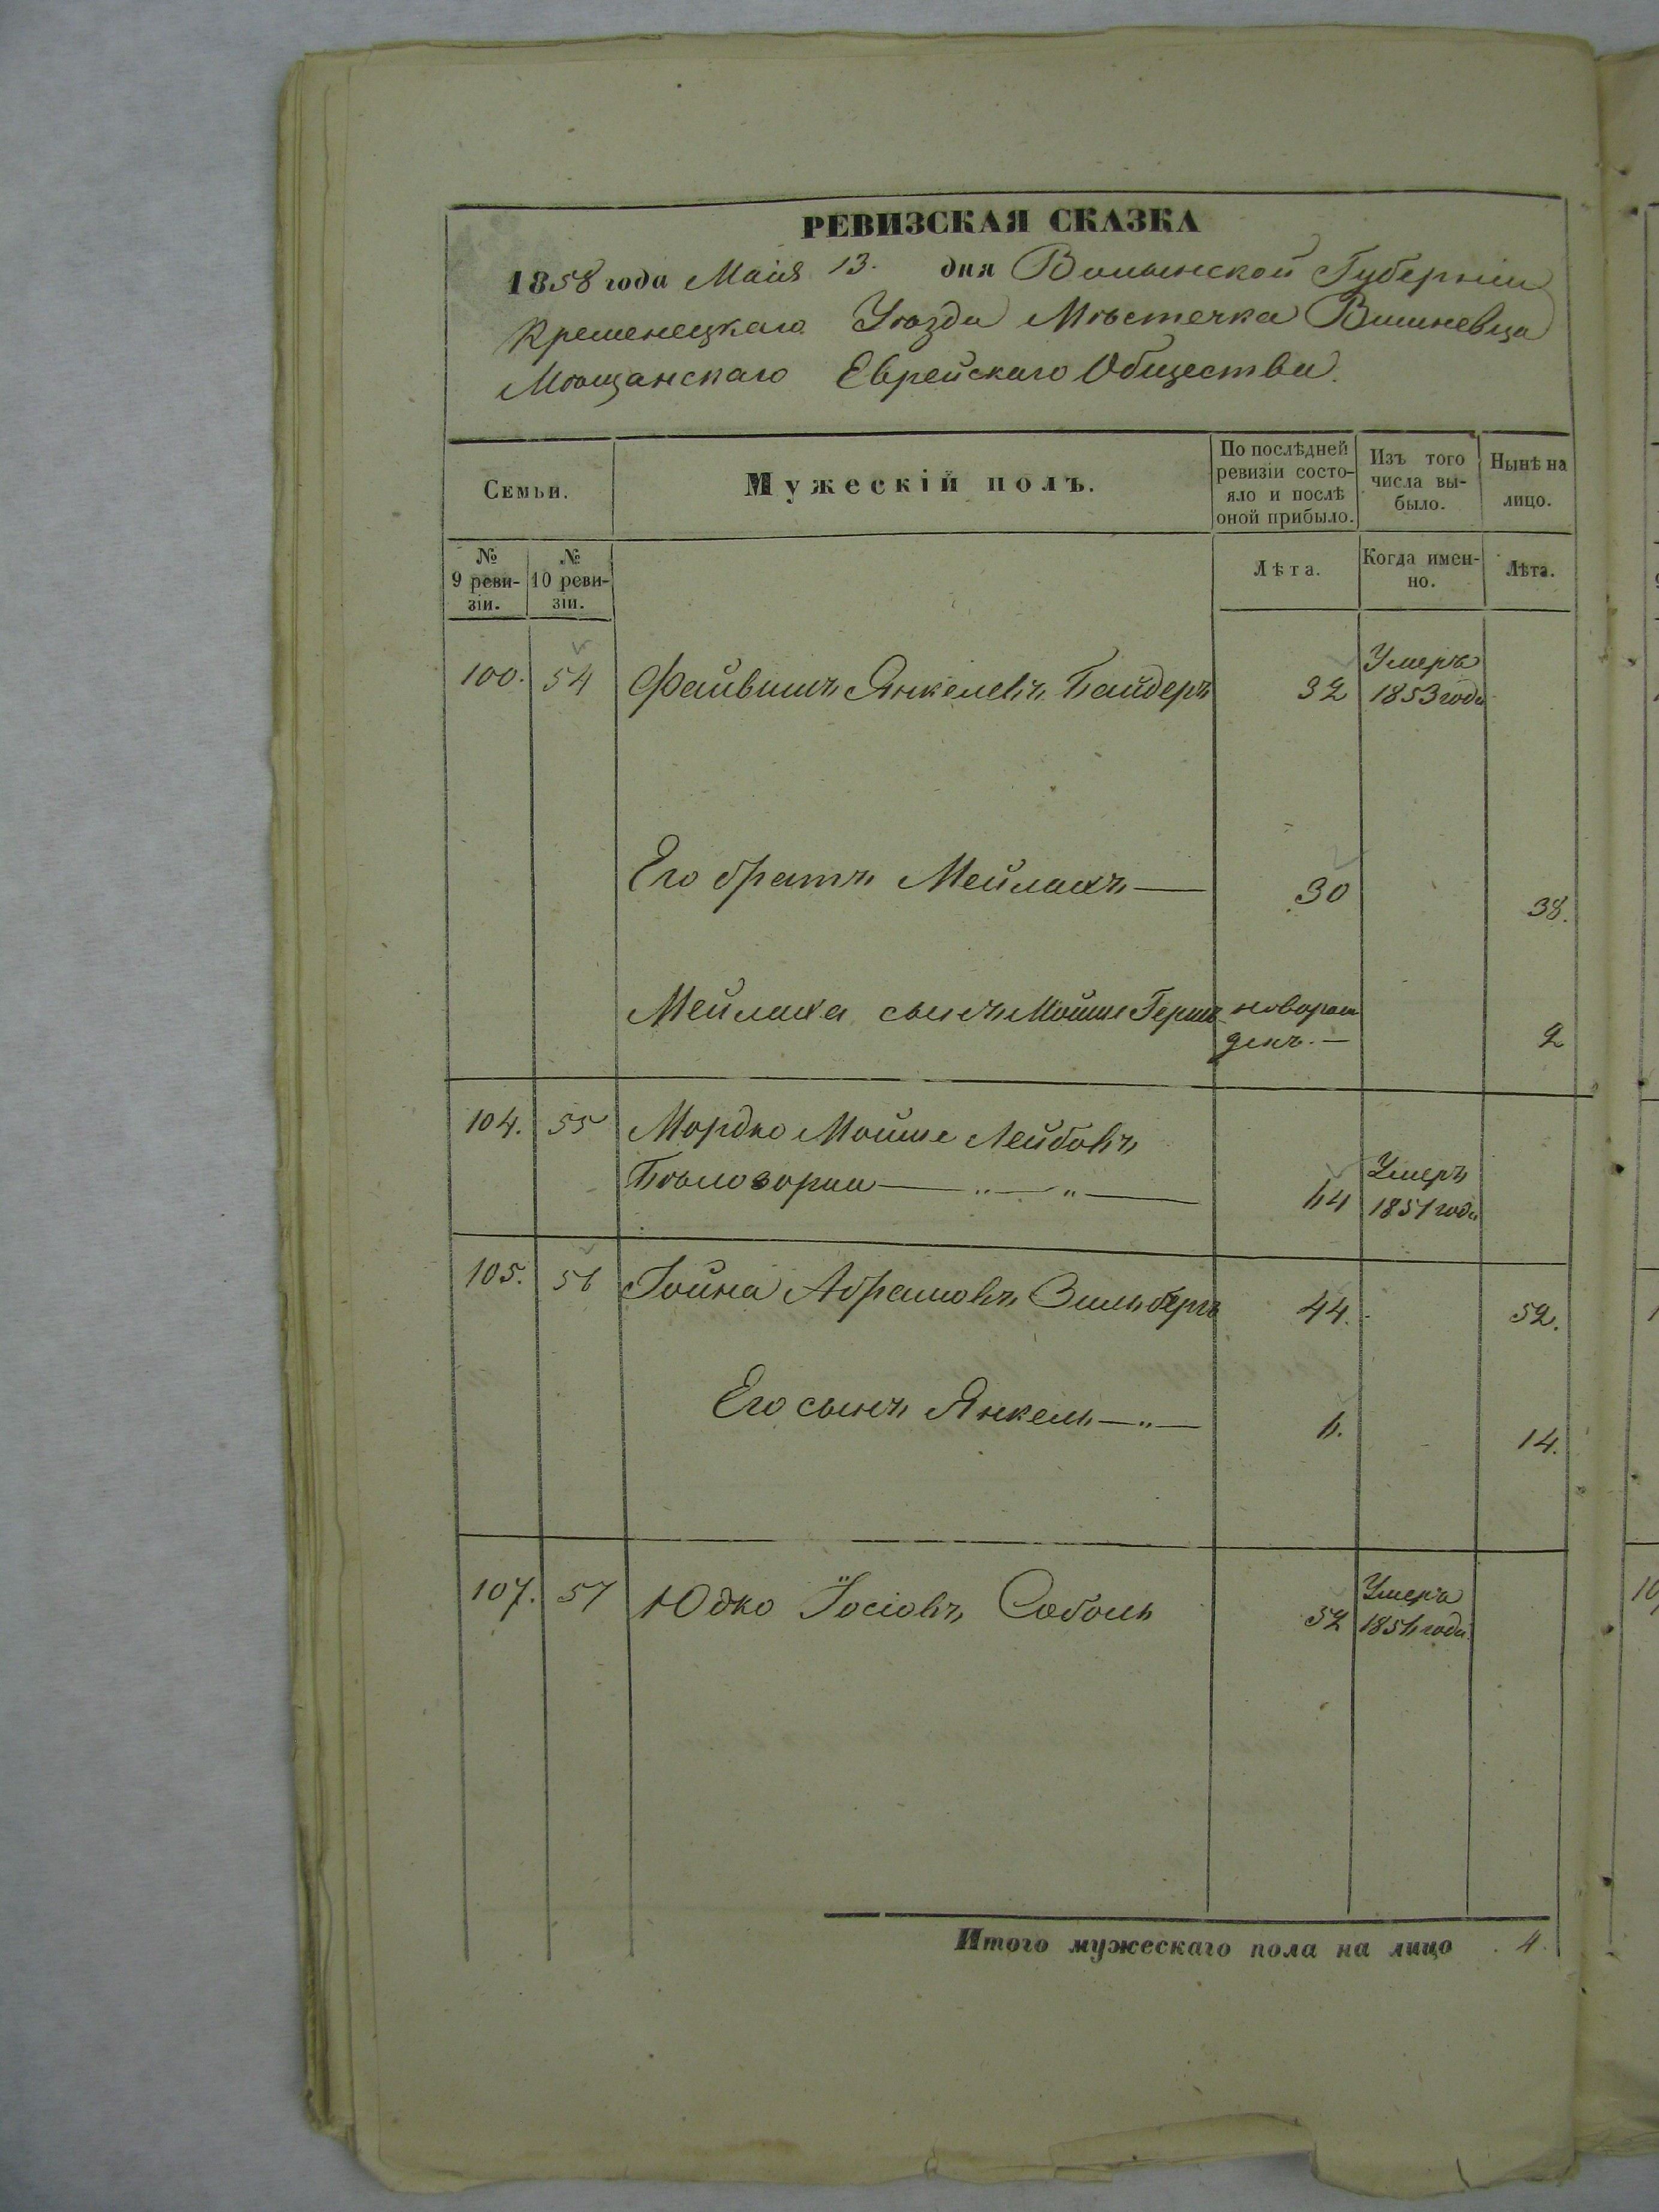 РЕВИЗСКАЯ СКАЗКА
1858 года Маія 13. дня Волынской Губерніи
Кременецкаго Уѣзда Мѣстечка Вишневца
Мѣщанскаго Еврейскаго Общества.
Семьи.
Мужескій полъ.
По послѣдней ревизіи состо-
яло и послѣ оной прибыло.
Изъ того числа вы-
было.
Нынѣ на лицо.
№ 9 реви-
зіи.
№ 10 реви-
зіи.
Лѣта.
Когда имен-
но.
Лѣта.
100. 54 Файвишъ Янкелевъ Байдеръ 32 Умеръ 1853 года
Его братъ Мейлахъ — 30 38.
Мейлаха сынъ Мойше Герш новорож
денъ. — 2
104. 55 Мордко Мойше Лейбовъ
Бѣлозорка — „ — „ — 64 Умеръ 1851 года
105. 56 Іойна Абрамовъ Зильбергъ 44. 52.
Его сынъ Янкель — „ — 6. 14.
107. 57 Юдко Іосіовъ Соболь 52 Умеръ 1856 года
Итого мужескаго пола на лицо 4.